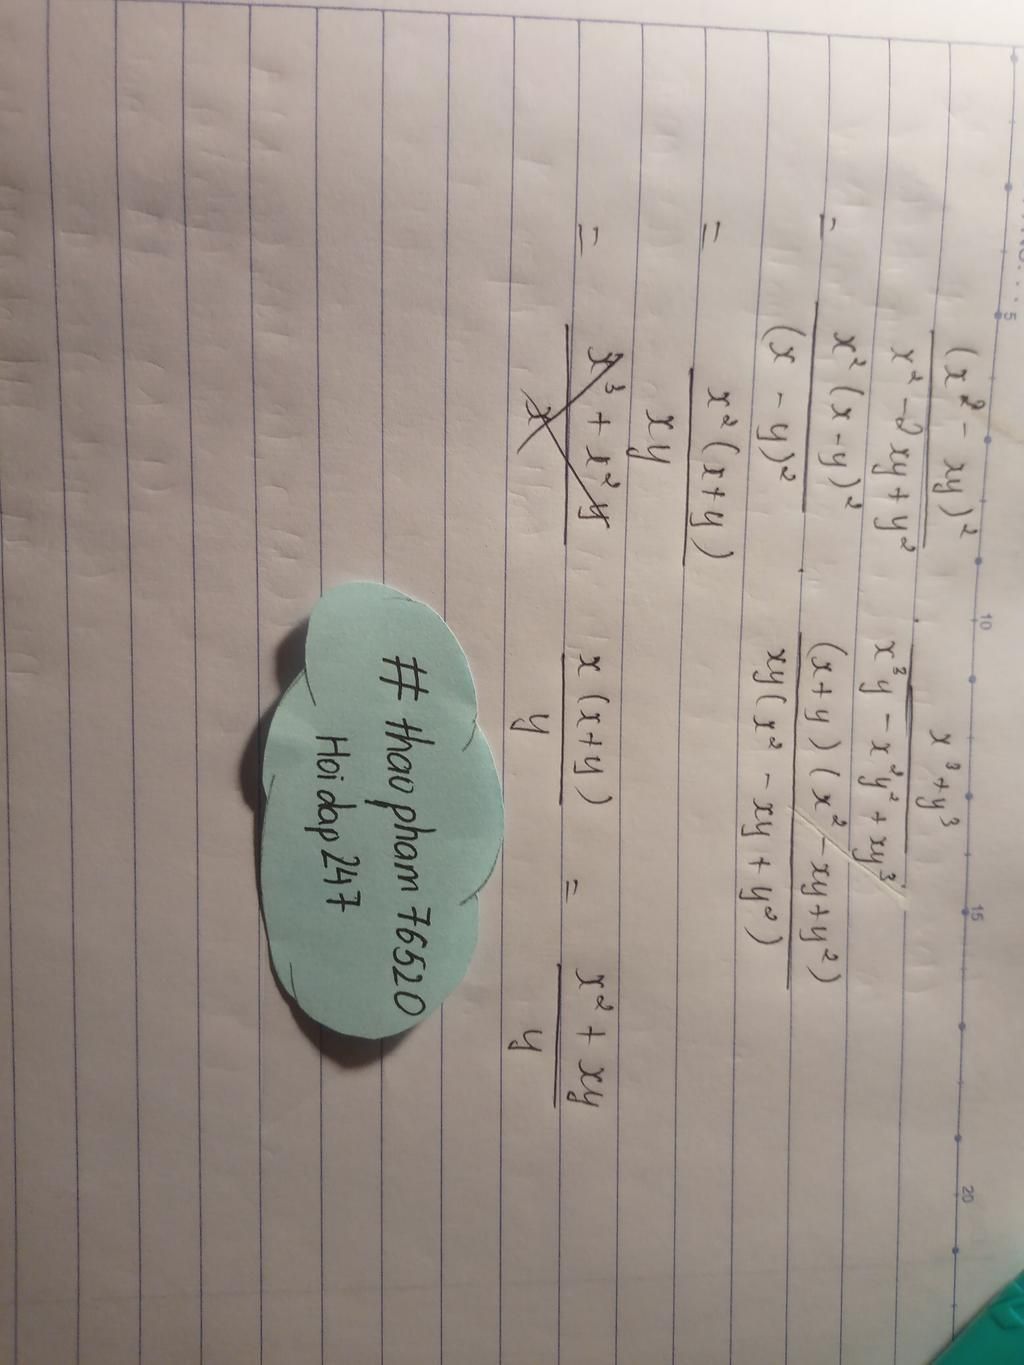 5 10 15 20
(x² - xy)² / x² - 2xy + y² . x³ + y³ / x³y - x²y² + xy³
= x²(x - y)² / (x - y)² . (x + y)(x² - xy + y²) / xy(x² - xy + y²)
= x²(x + y) / xy
= x³ + x²y / x x(x + y) / y = x² + xy / y
# thao pham 76520
Hoi dap 247